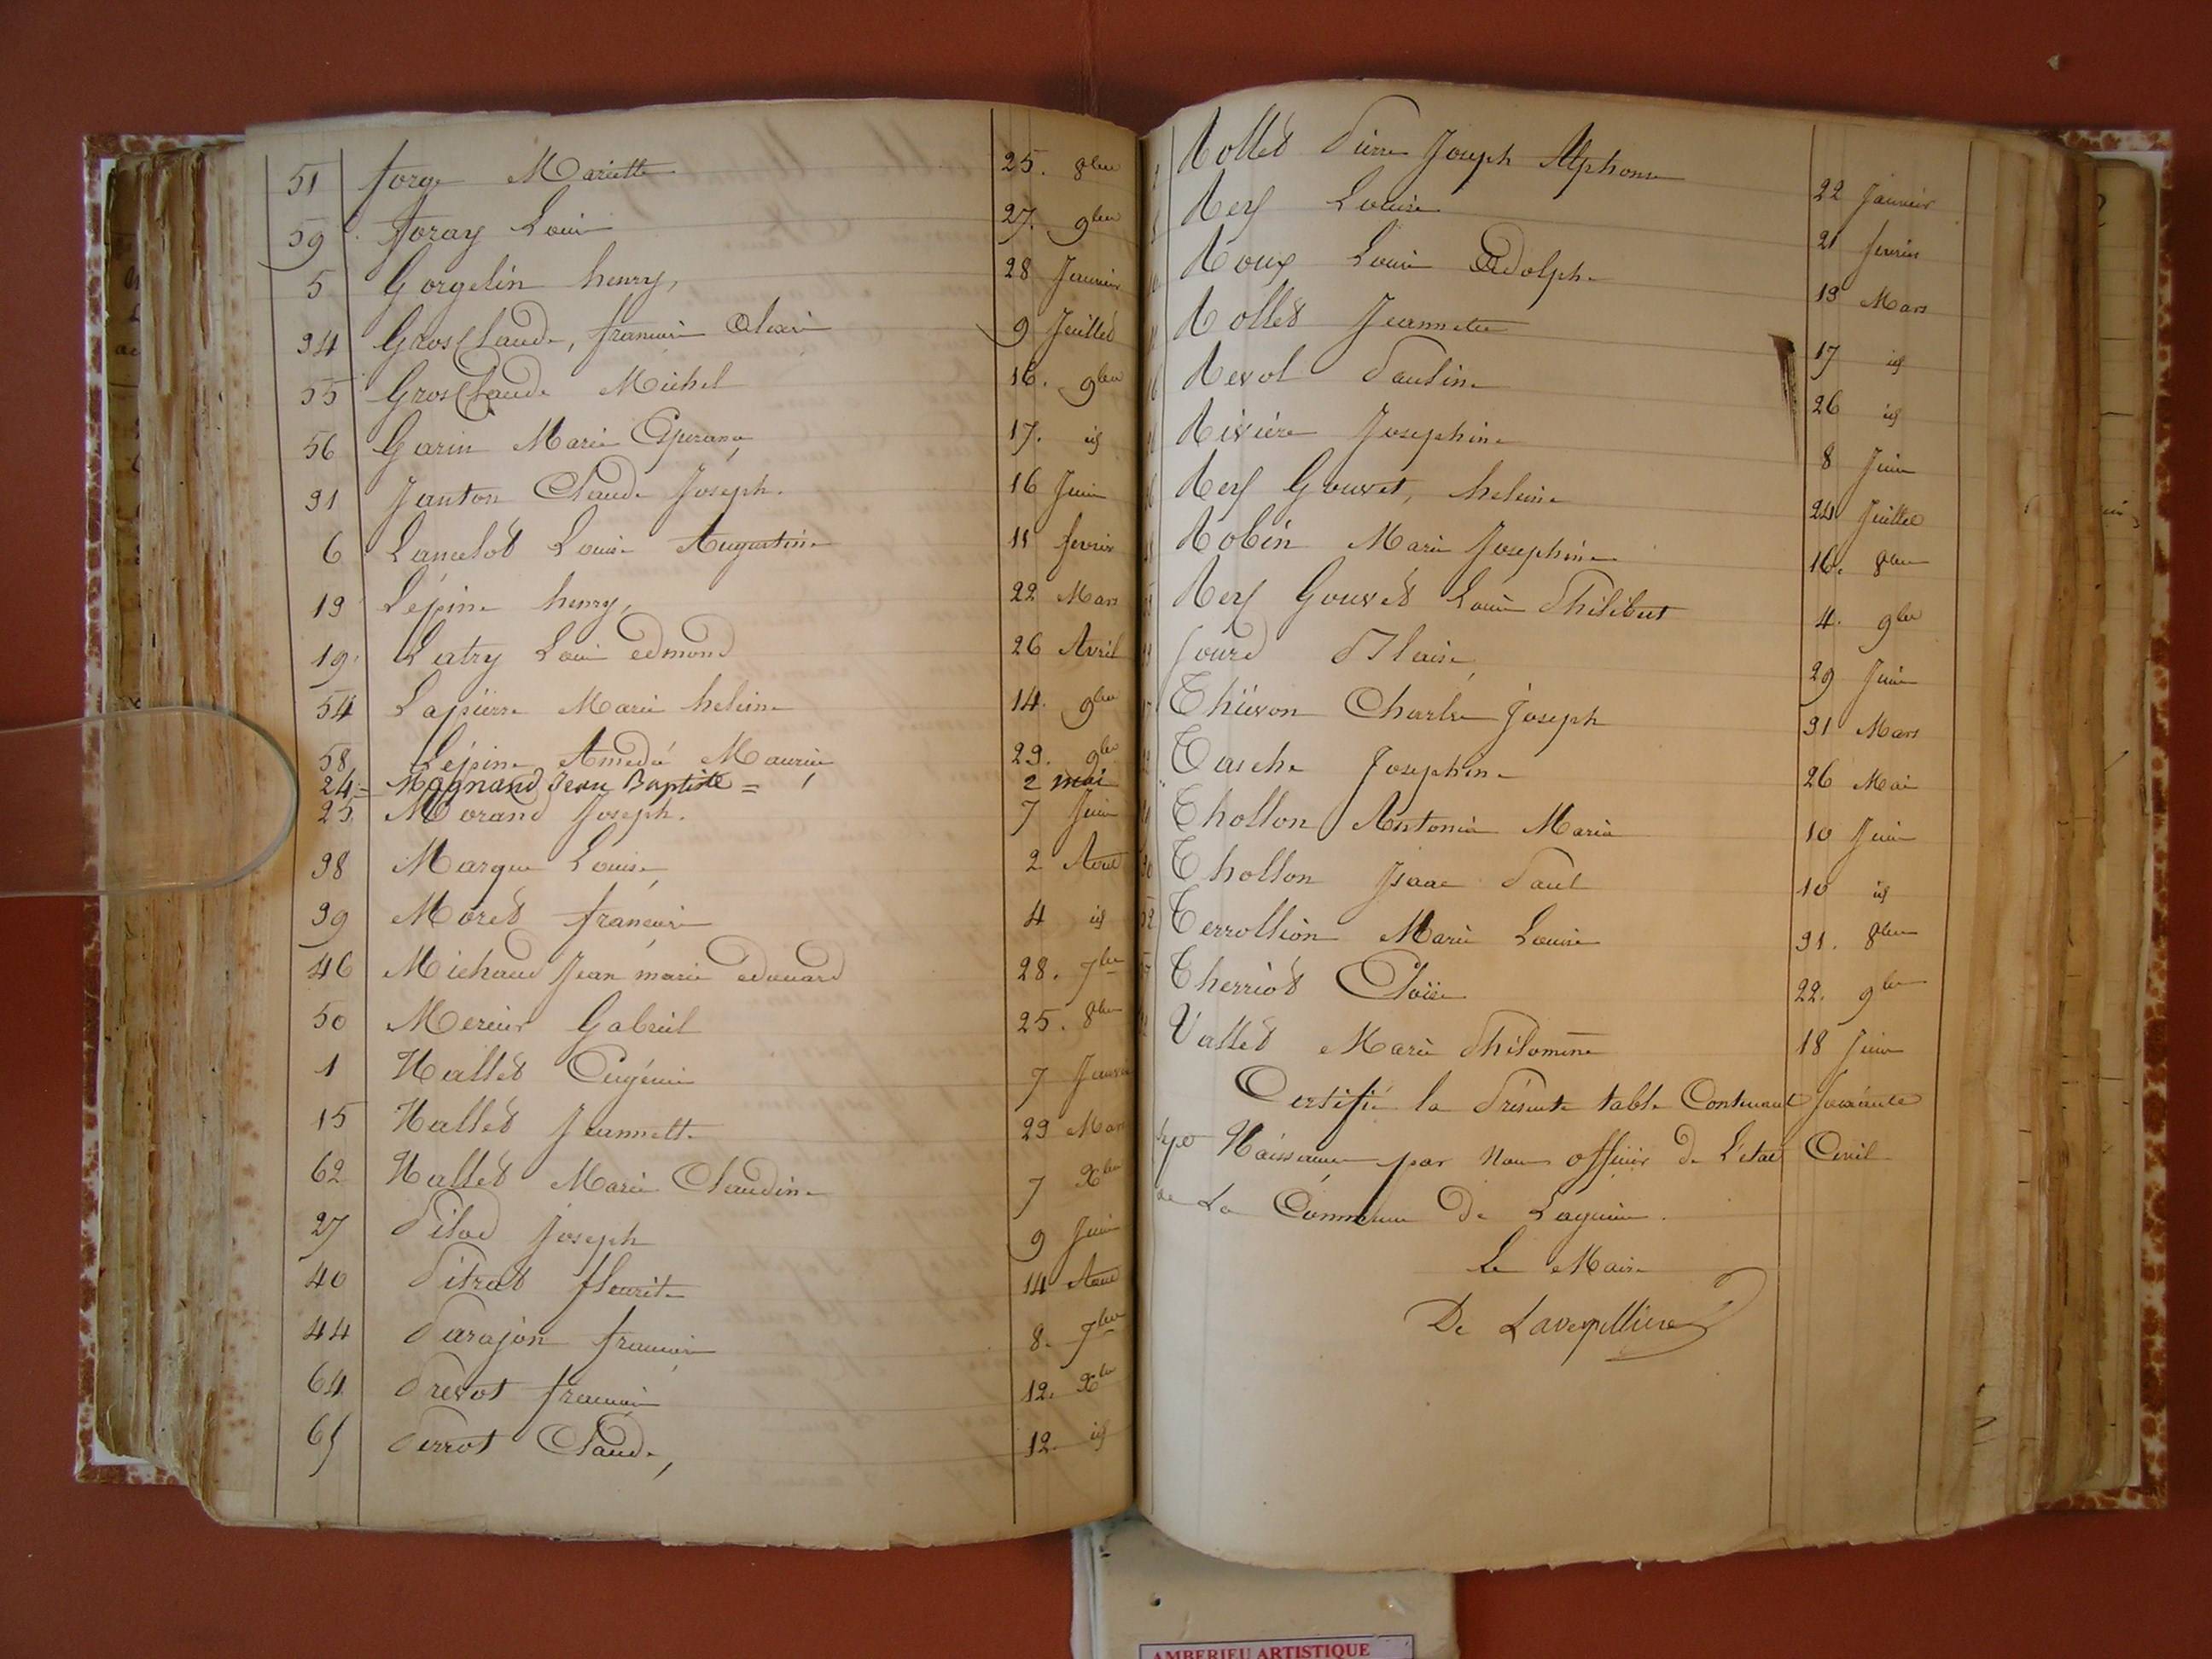 51 forge Mariette 25. 8bre
59 foray Louis 27. 9bre
5 Gorgelin henry, 28 Janvier
34 GrosClaude, francois Alexis 9 Juillet
55 GrosClaude Michel 16. 9bre
56 Garin Marie Esperance 17. id
31 Janton Claude Joseph. 16 Juin
6 Lancelot Louise Augustine 11 fevrier
13 Lépine henry, 22 Mars
19 Latry Louis edmond 26 Avril
54 Lapierre Marie heleine 14. 9bre
58 Lépine Amedé Maurice 23. 9bre
24 = Magnand Jean Baptiste = 2 mai
25 Morand Joseph. 7 Juin
38 Marque Louise 2 Aout
39 Moret francois 4 id
46 Michaud Jean marie edouard 28. 7bre
50 Mercier Gabriel 25. 8bre
1 Nallet Eugénie 7 Janvier
15 Nallet Jeannette 23 Mars
62 Nallet Marie Claudine 7 Xbre
27 Pilod Joseph 9 Juin
40 Pitrat fleurite 14 Aout
44 Parajon francois 8. 7bre
64 Prevot francois 12. Xbre
65 Perrot Claude, 12. id
Rollet Pierre Joseph Alphonse 22 Janvier
Rey Louise 21 fevrier
Roux Louis Adolphe 13 Mars
Rollet Jeannette 17 id
Revol Pauline 26 id
Rivière Josephine 8 Juin
Rey Gouvet, heleine 24 Juillet
Robin Marie Josephine 16. 8bre
Rey Gouvet Louis Philibert 4. 9bre
Sourd Blaise 29 Juin
Thiévon Charles Joseph 31 Mars
Tasche Josephine 26 Mai
Thollon Antonia Maria 10 Juin
Thollon Isaac Paul 10 id
52 Terrollion Marie Louise 31. 8bre
57 Therriot Cloïse 22. 9bre
Vallet Marie Philomène 18 Juin
Certifié la Présente table Contenant soixante
sept Naissances par Nous officier de L'état Civil
de La Commune de Lagnieu.
Le Maire
De Laverpillière
AMBERIEU ARTISTIQUE